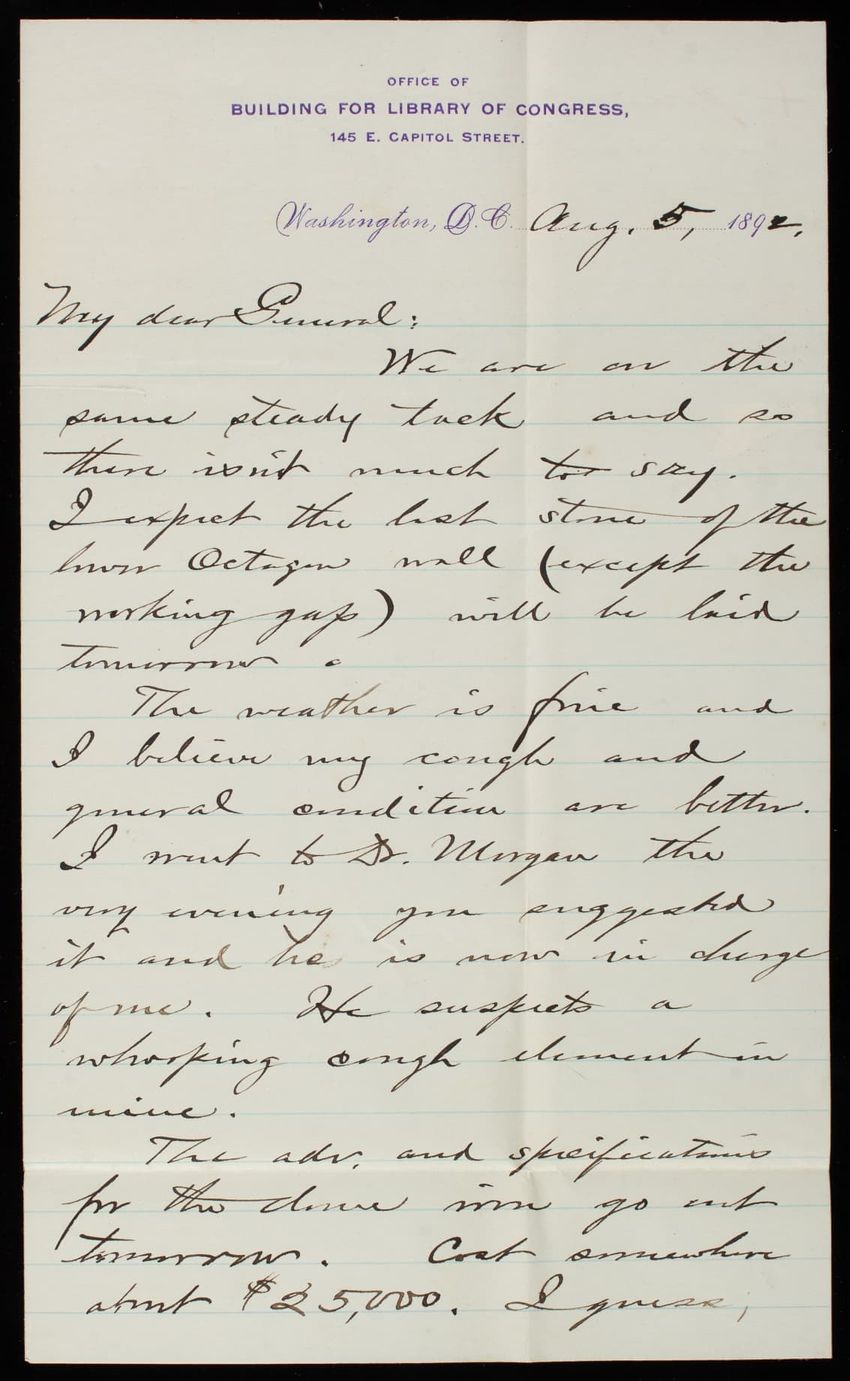 OFFICE OF
BUILDING FOR LIBRARY OF CONGRESS,
145 E. CAPITOL STREET.
Washington, D.C. Aug. 5, 1892.
My dear General:
We are on the
same steady tack and so
there isn't much to say.
I expect the last stone of the
lower Octagon wall (except the
working gap) will be laid
tomorrow.
The weather is fine and
I believe my cough and
general condition are better.
I went to Dr. Morgan the
very evening you suggested
it and he is now in charge
of me. He suspects a
whooping cough element in
mine.
The adv. and specifications
for the dome iron go out
tomorrow. Cost somewhere
about $25,000. I guess,